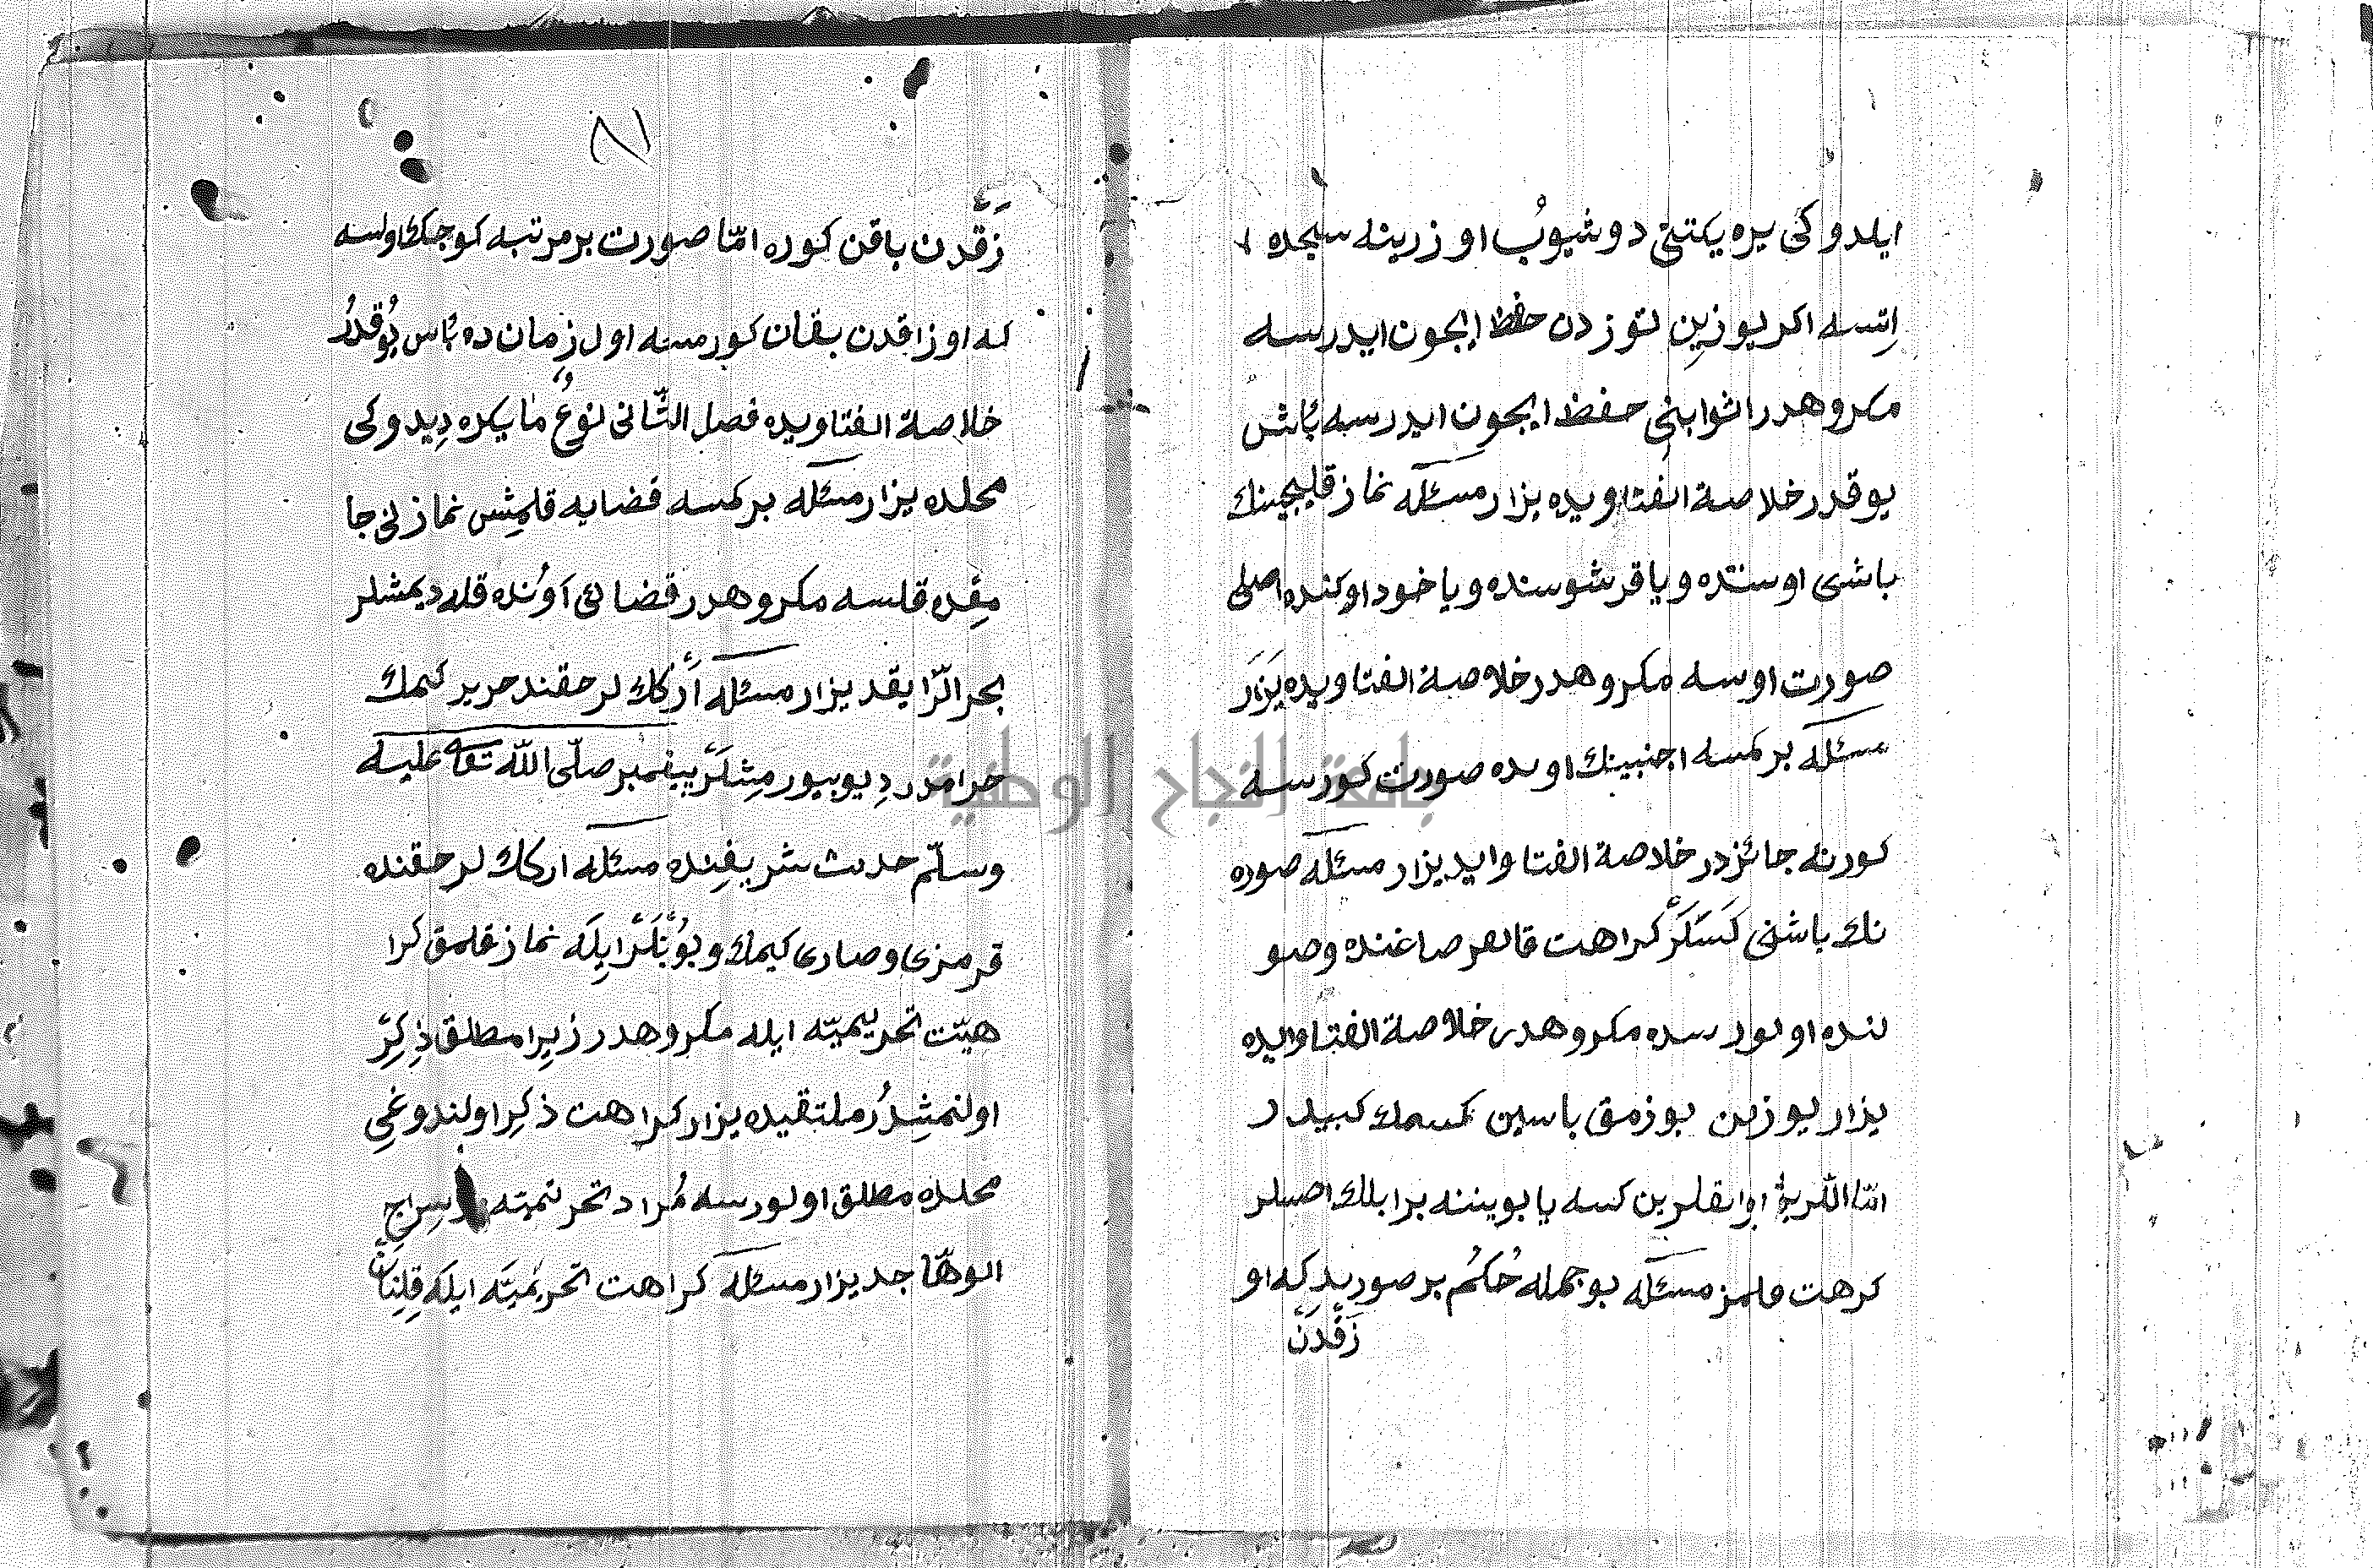 ايلدوكى يره يكتنى دوشيوب اوزرينه سجده
اتسه اكر يوزين توزدن حفظ ايچون ايدرسه
مكروهدر اثوابنى حفظ ايچون ايدرسه باش
يوقدر خلاصة الفتاويده يزار مسئله نماز قليجينك
باشى اوستنده ويا قرشوسنده وياخود اوكنده اصلى
صورت اوسه مكروهدر خلاصة الفتاويده يزار
مسئله بر كمسه اجنبينك اوىده صورت كورسه
كورنه جائزدر خلاصة الفتاوايد يزار مسئله صوره
نك باشنى كسكر كراهت قالمر صاغنده وصو
لنده اولورسده مكروهدر خلاصة الفتاوايده
يزار يوزين بوزمق باسين كسمك كبيدر
امّا اللرين اواىقلرين كسه يا بويننه برابلك اصسلر
كرهت قلمز مسئله بوجمله حُكمُ بر صوريدكه او
زقدن
٨١
زقدن باقن كوره امّا صورت بر مرتبه كوجك اولسه
كه اوزاقدن بقان كورمسه اول زمان ده باس يُوقدرُ
خلاصة الفتاويده فصل الثّانى نوعٌ ما يكره ديدوكى
محلده يزار مسئله بر كمسه قضايه قلمِش نمازنى جا
مِقده قلسه مكروهدر قضا لاى آوُنده قله ديمشلر
بحر الرّايقد يزار مسئله ارْكك لر حقند حرير كيمك
حرامدر دِيو بيورمِشلَر پيغمبر صلّى اللّه تعا عليه
وسلّم حديث شريفِنده مسئله اركك لر حقنده
قرمزى وصارى كيمك وبُونلَرْ ايلَه نماز قلمق كرا
هيّت تحريميّه ايله مكروهدر زيرا مطلق ذِكِرْ
اولنمشِدُر ملتقيده يزار كراهت ذكِر اولندوغى
محلده مطلق اولورسه مُراد تحرىميّه در سِراجِ
الوهّاجد يزار مسئله كراهت تحريميَّه ايلَه قِلِنَانْ